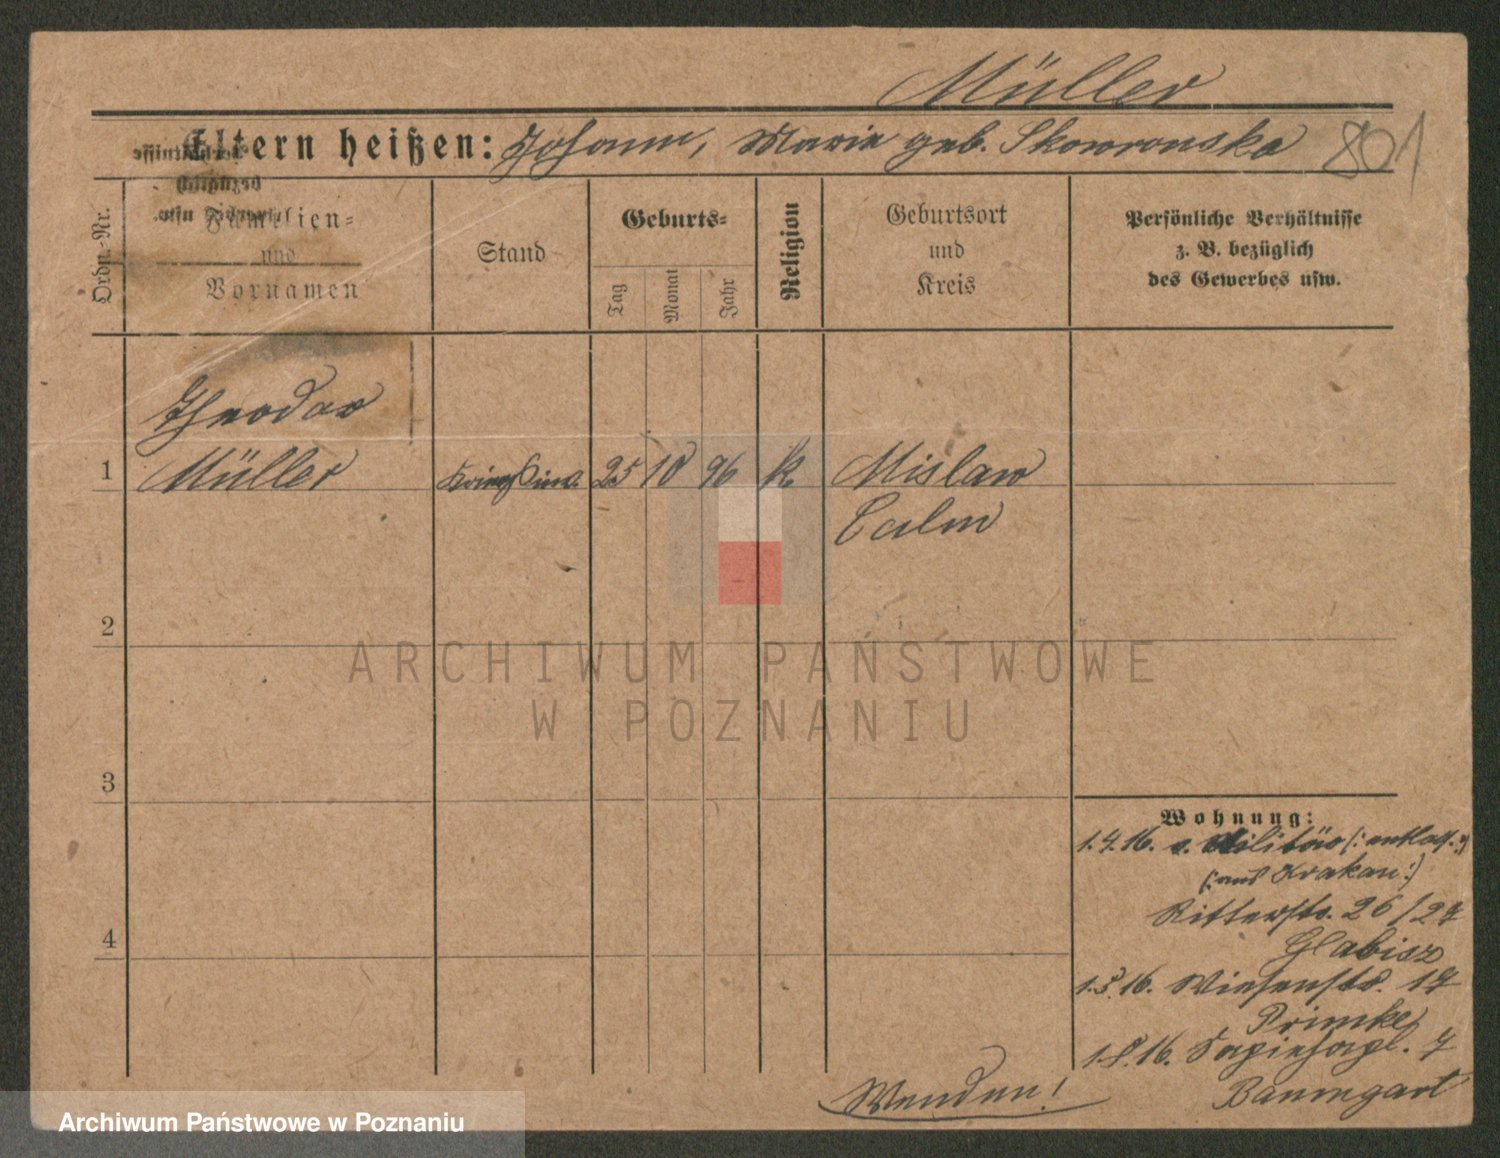 Müller
Eltern heißen: Johann, Marie geb. Skowronska 801
Ordn.-Nr.
Familien-
und
Vornamen
Stand
Geburts-
Tag
Monat
Jahr
Religion
Geburtsort
und
Kreis
Persönliche Verhältnisse
z. B. bezüglich
des Gewerbes usw.
Theodor
1 Müller Kriegsinv. 25 10 96 k. Mislaw
Culm
2
3
4
Wohnung:
1.4.16. v. Militär (: entlass. :)
(: aus Krakau :)
Ritterstr. 26/27
Glabisz
1.5.16. Wiesenstr. 17
Primke
1.8.16. Sapiehapl. 7
Baumgart
Wenden!
ARCHIWUM PAŃSTWOWE
W POZNANIU
Archiwum Państwowe w Poznaniu